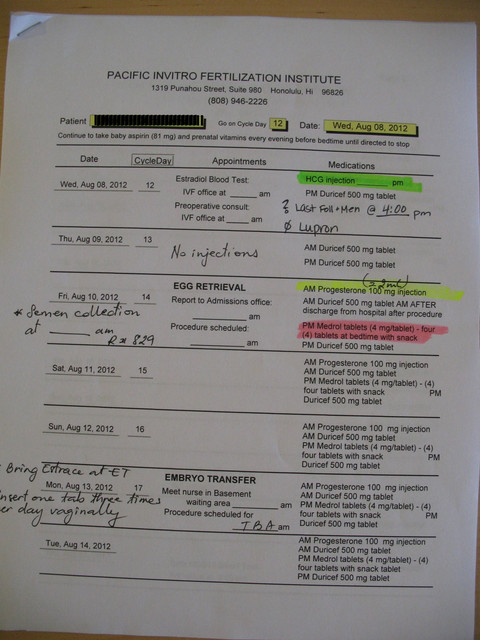 PACIFIC INVITRO FERTILIZATION INSTITUTE
1319 Punahou Street, Suite 980 Honolulu, Hi 96826
(808) 946-2226
Patient Go on Cycle Day 12 Date: Wed, Aug 08, 2012
Continue to take baby aspirin (81 mg) and prenatal vitamins every evening before bedtime until directed to stop
Date CycleDay Appointments Medications
Wed, Aug 08, 2012 12 Estradiol Blood Test: HCG injection ______ pm
IVF office at ______ am PM Duricef 500 mg tablet
Preoperative consult: ? Last Foll + Men @ 4:00 pm
IVF office at ______ am Ø Lupron
Thu, Aug 09, 2012 13 No injections AM Duricef 500 mg tablet
PM Duricef 500 mg tablet
(= 2mL)
EGG RETRIEVAL AM Progesterone 100 mg injection
Fri, Aug 10, 2012 14 Report to Admissions office: AM Duricef 500 mg tablet AM AFTER
* Semen collection ______ am discharge from hospital after procedure
at ______ am Procedure scheduled: PM Medrol tablets (4 mg/tablet) - four
Rm # 829 ______ am (4) tablets at bedtime with snack
PM Duricef 500 mg tablet
Sat, Aug 11, 2012 15 AM Progesterone 100 mg injection
AM Duricef 500 mg tablet
PM Medrol tablets (4 mg/tablet) - (4)
four tablets with snack PM
Duricef 500 mg tablet
Sun, Aug 12, 2012 16 AM Progesterone 100 mg injection
AM Duricef 500 mg tablet
PM Medrol tablets (4 mg/tablet) - (4)
four tablets with snack PM
Duricef 500 mg tablet
Bring Estrace at ET
EMBRYO TRANSFER AM Progesterone 100 mg injection
Mon, Aug 13, 2012 17 Meet nurse in Basement AM Duricef 500 mg tablet
insert one tab three times waiting area ______ am PM Medrol tablets (4 mg/tablet) - (4)
per day vaginally Procedure scheduled for four tablets with snack PM
TBA am Duricef 500 mg tablet
Tue, Aug 14, 2012 AM Progesterone 100 mg injection
AM Duricef 500 mg tablet
PM Medrol tablets (4 mg/tablet) - (4)
four tablets with snack
PM Duricef 500 mg tablet